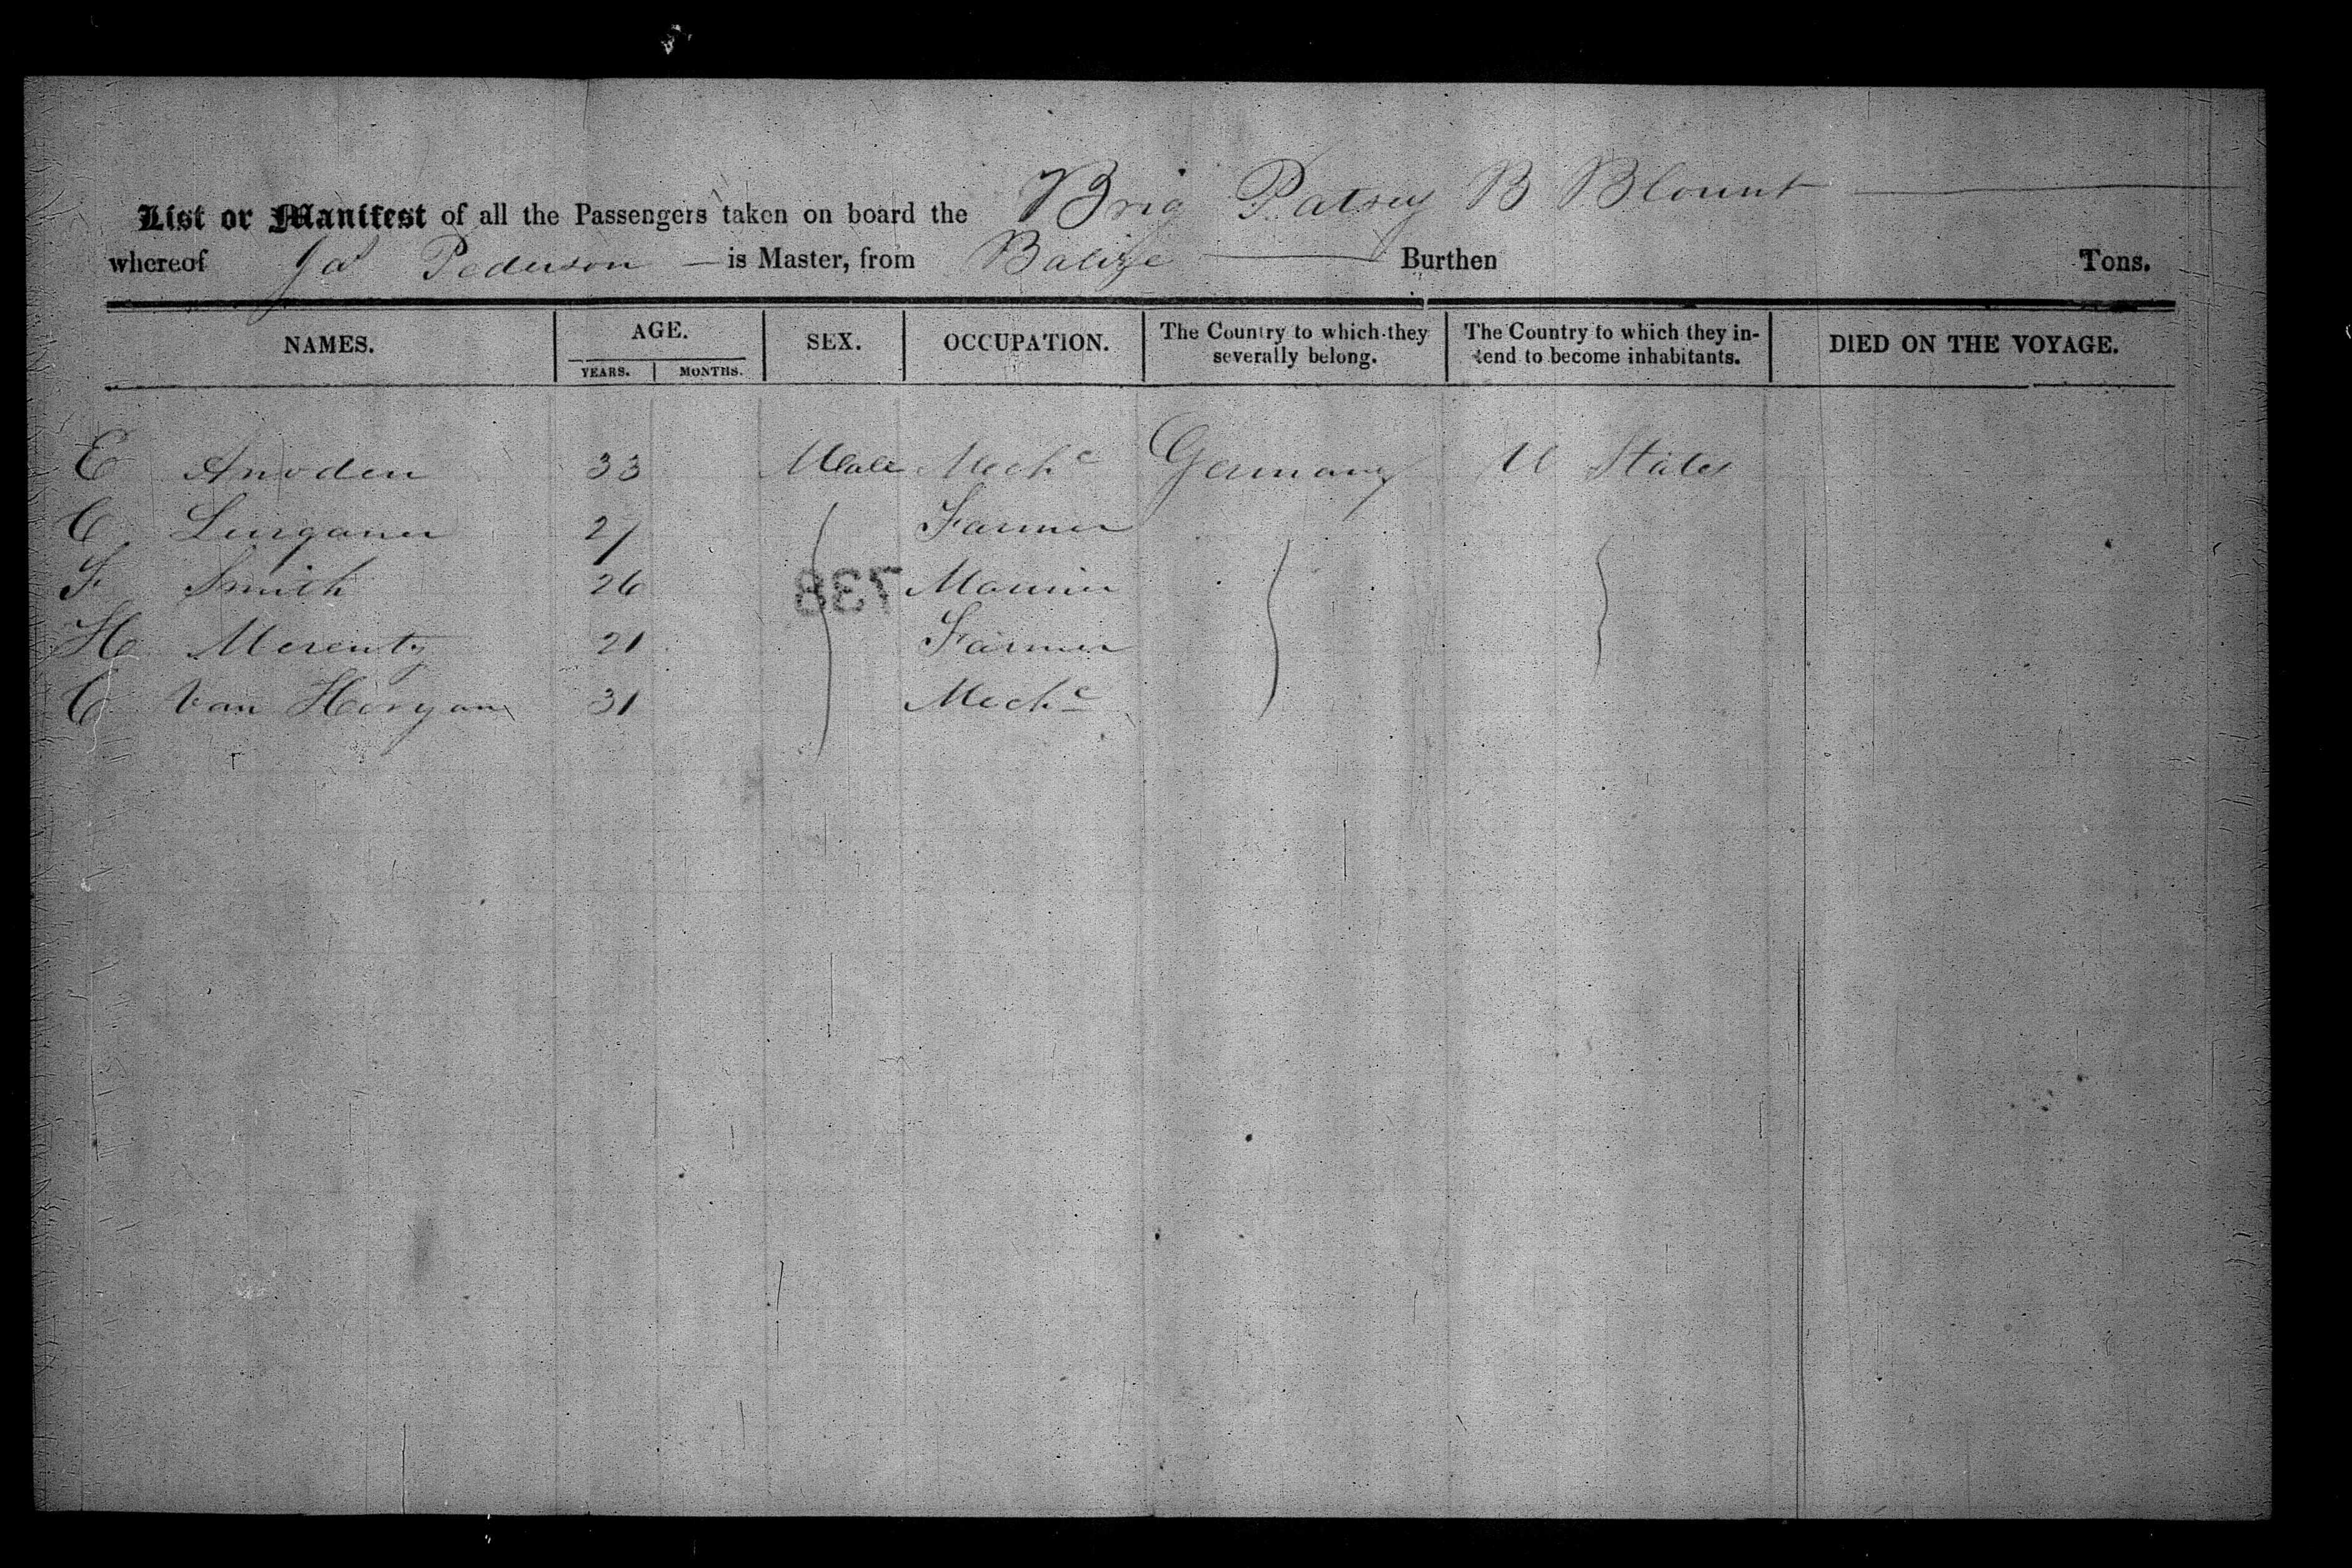 List or Manifest of all the Passengers taken on board the Brig Patsey B Blount
whereof Jas Pederson is Master, from Balize Burthen Tons.
NAMES. AGE. SEX. OCCUPATION. The Country to which they severally belong. The Country to which they intend to become inhabitants. DIED ON THE VOYAGE.
YEARS. MONTHS.
E Anoden 33 Male Mechc Germany U States
C 27 Farmer
F Smith 26 Mariner
H Merentz 21 Farmer
C Van Horgan 31 Mechc
8738